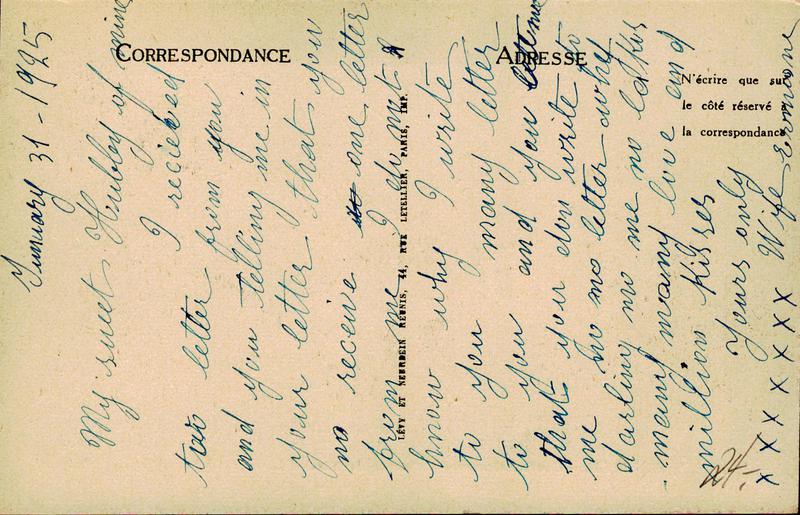 CORRESPONDANCE
ADRESSE
N'écrire que sur
le côté réservé à
la correspondance
LÉVY ET NEURDEIN RÉUNIS, 44, RUE LETELLIER, PARIS, IMP.
January 31-1925
My sweet Hubby of mine
I recieved
two letter from you
and you telling me in
your letter that you
no receive one letter
from me I do not
know why I write
to you many letter
to you and you
that you don write to
me no no letter why
darling no me no
many many love and
million kisses
Yours only
x x x x x x x Wife
24-